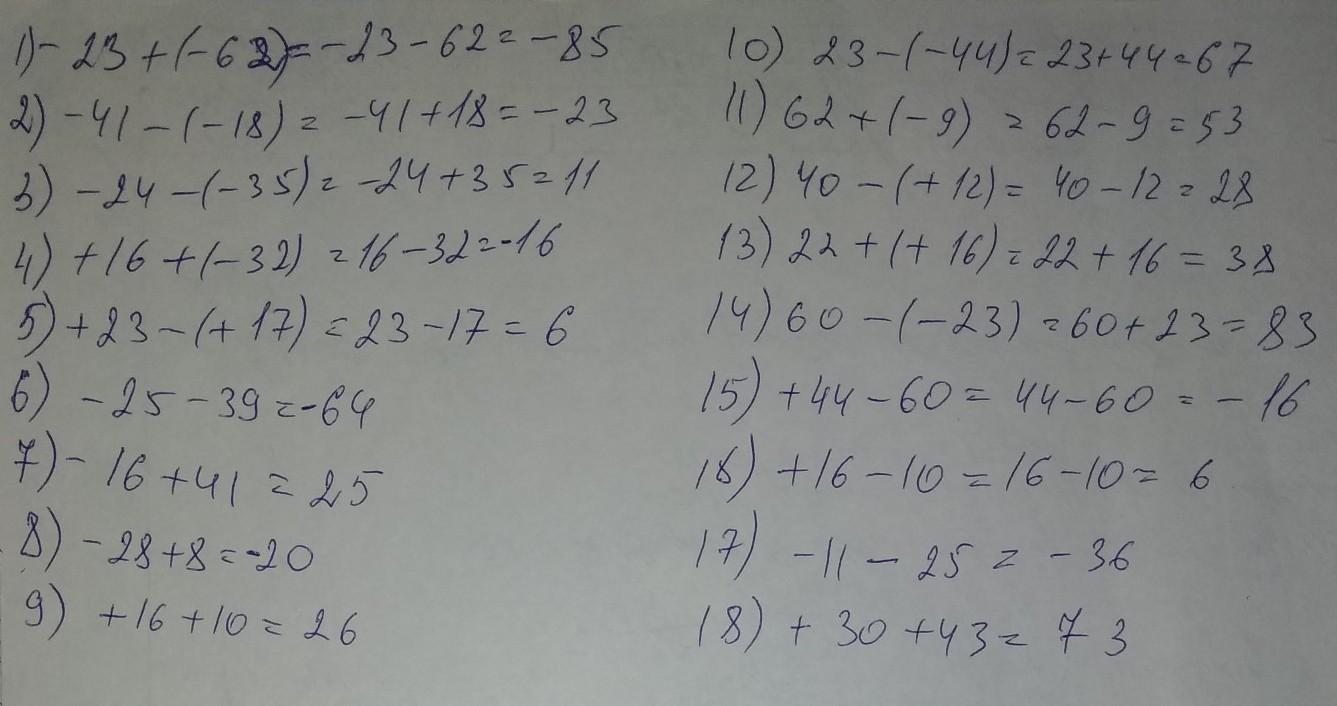 1) -23+(-62)=-23-62=-85
2) -41-(-18)=-41+18=-23
3) -24-(-35)=-24+35=11
4) +16+(-32)=16-32=-16
5) +23-(+17)=23-17=6
6) -25-39=-64
7) -16+41=25
8) -28+8=-20
9) +16+10=26
10) 23-(-44)=23+44=67
11) 62+(-9)=62-9=53
12) 40-(+12)=40-12=28
13) 22+(+16)=22+16=38
14) 60-(-23)=60+23=83
15) +44-60=44-60=-16
16) +16-10=16-10=6
17) -11-25=-36
18) +30+43=73